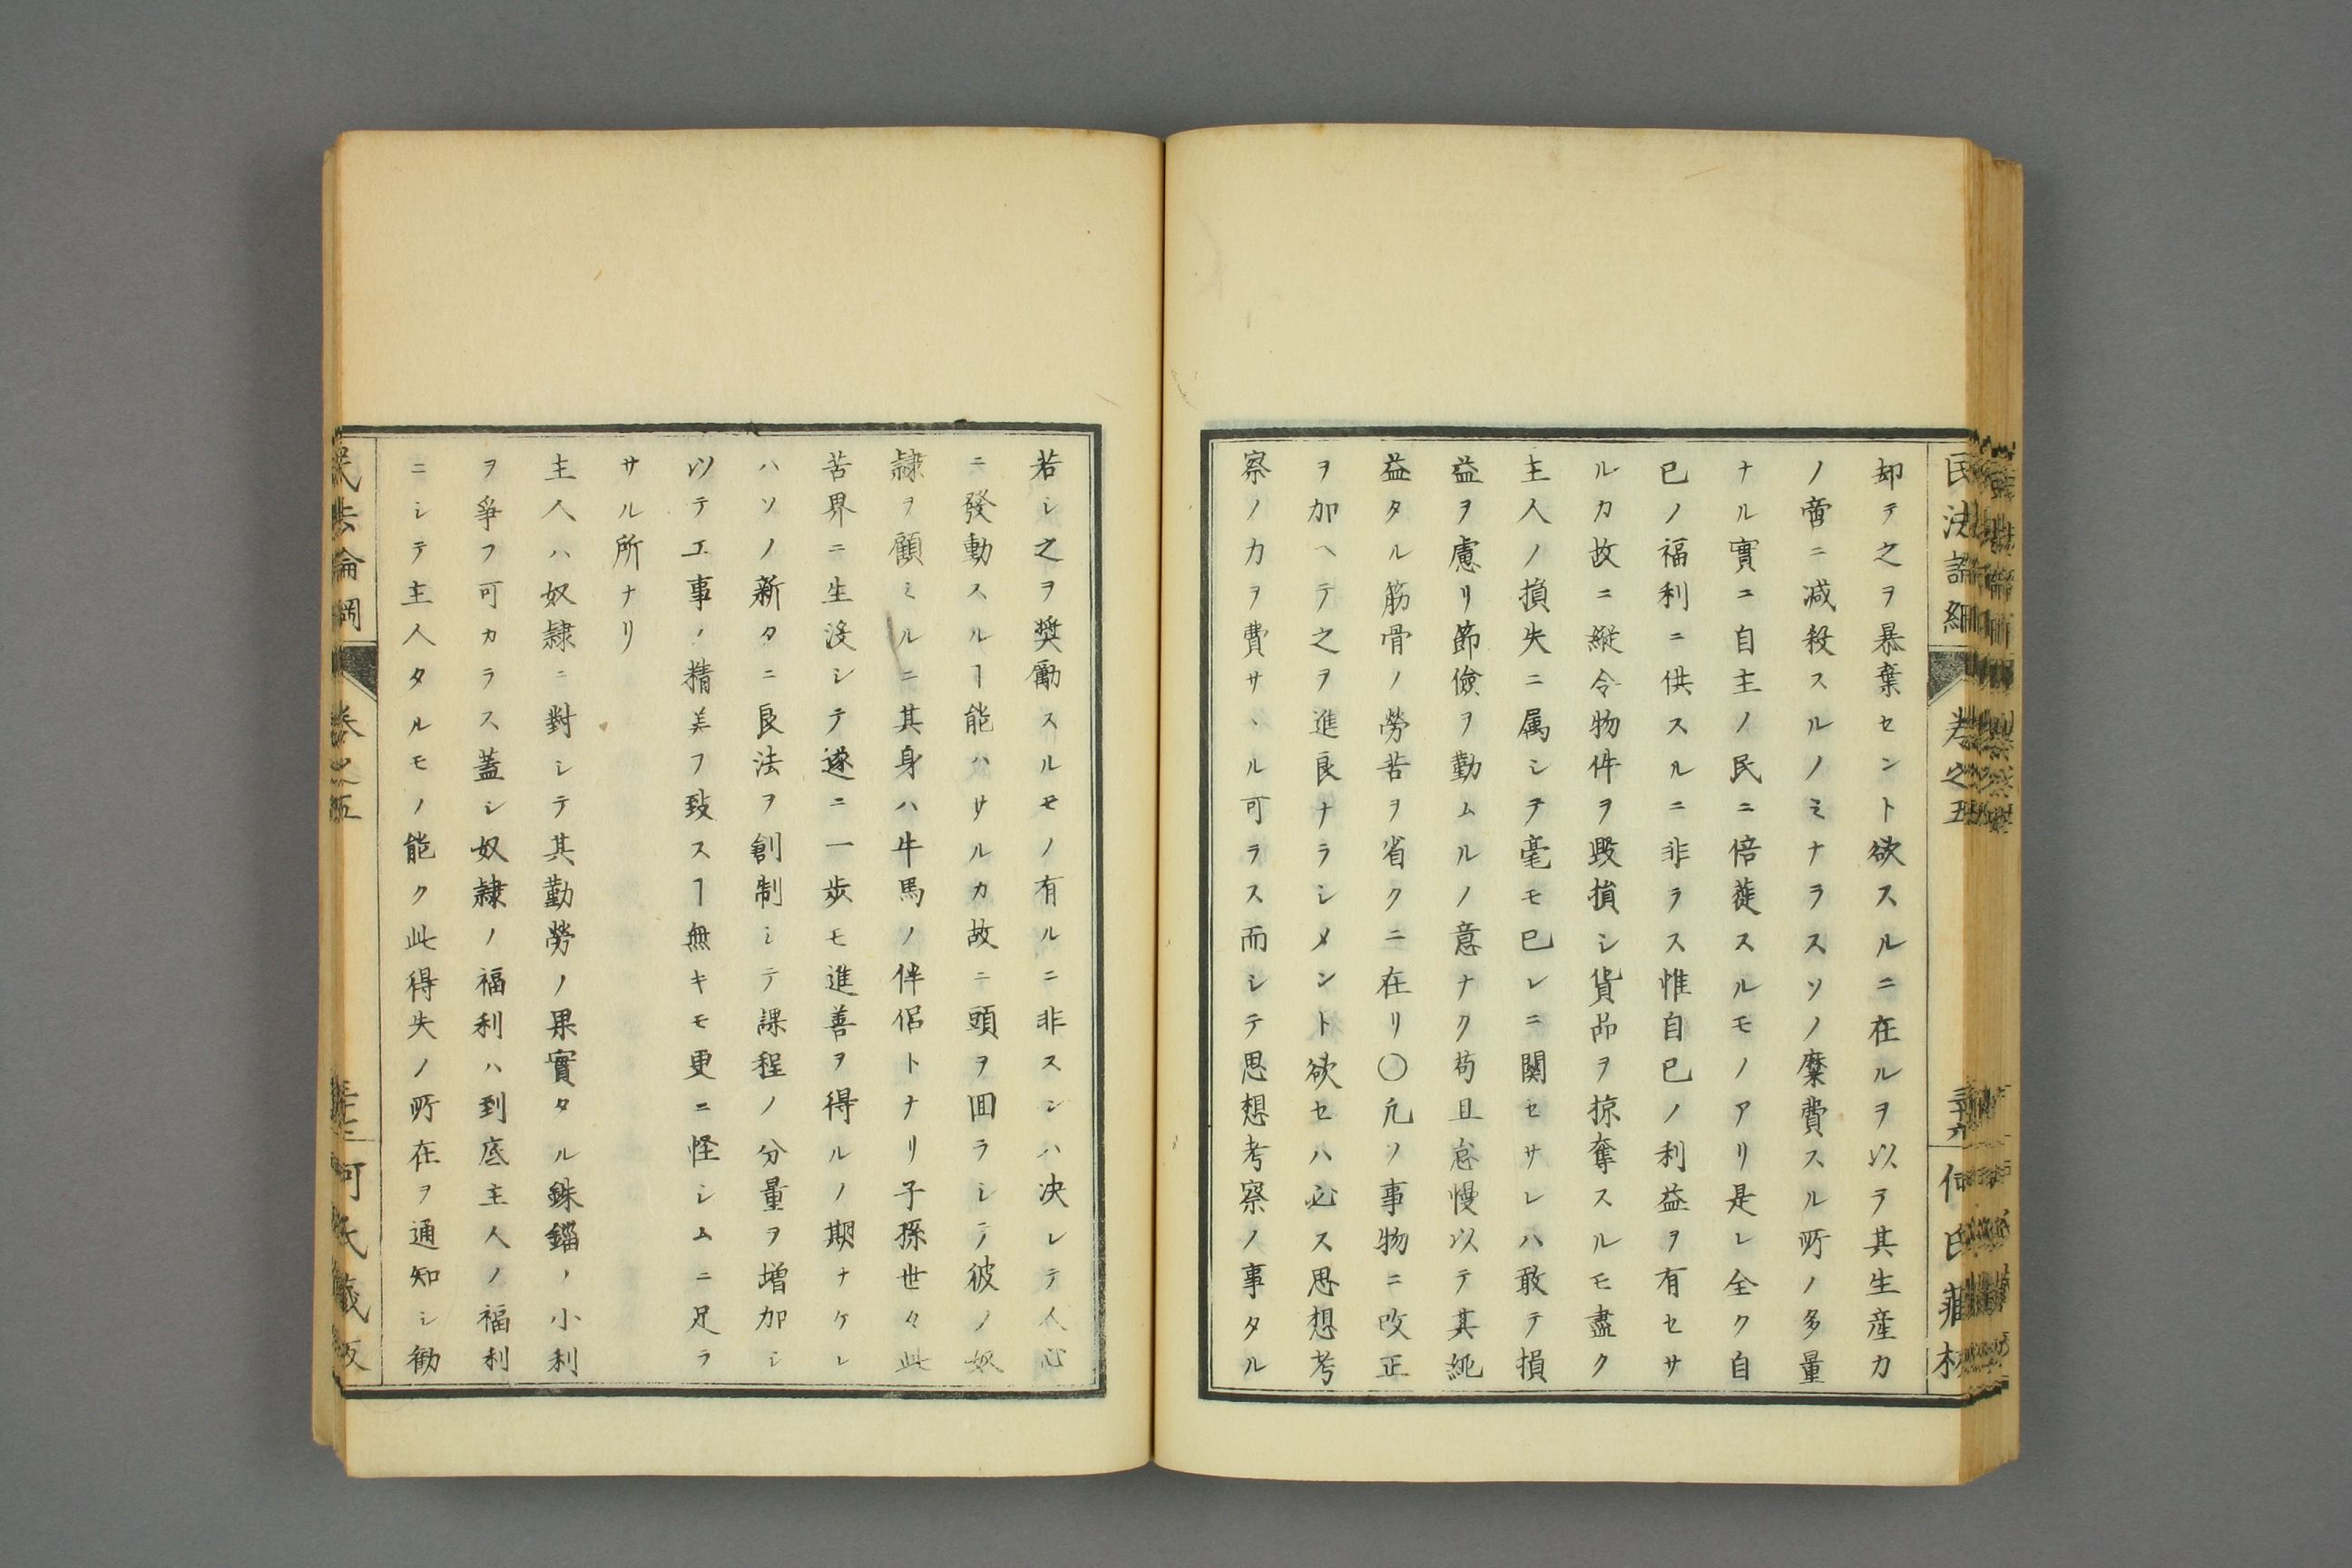 却テ之ヲ暴棄セント欲スルニ在ルヲ以テ其生産力
ノ啻ニ減殺スルノミナラスソノ糜費スル所ノ多量
ナル實ニ自主ノ民ニ倍蓰スルモノアリ是レ全ク自
已ノ福利ニ供スルニ非ラス惟自已ノ利益ヲ有セサ
ルカ故ニ縦令物件ヲ毀損シ貨品ヲ掠奪スルモ盡ク
主人ノ損失ニ属シテ毫モ已レニ関セサレハ敢テ損
益ヲ慮リ節儉ヲ勤ムルノ意ナク苟且怠慢以テ其純
益タル筋骨ノ勞苦ヲ省クニ在リ〇凡ソ事物ニ改正
ヲ加ヘテ之ヲ進良ナラシメント欲セハ必ス思想考
察ノ力ヲ費サヽル可ラス而シテ思想考察ノ事タル
民法論綱 巻之五 三十六 何氏蔵板
若シ之ヲ奬勵スルモノ有ルニ非スンハ决シテ人心
ニ發動スルヿ能ハサルカ故ニ頭ヲ囬ラシテ彼ノ奴
隷ヲ顧ミルニ其身ハ牛馬ノ伴侶トナリ子孫世々此
苦界ニ生没シテ遂ニ一歩モ進善ヲ得ルノ期ナケレ
ハソノ新タニ良法ヲ創制シテ課程ノ分量ヲ増加シ
以テ工事ノ精美フ致スヿ無キモ更ニ怪シムニ足ラ
サル所ナリ
主人ハ奴隷ニ對シテ其勤勞ノ果實タル銖錙ノ小利
ヲ爭フ可カラス蓋シ奴隷ノ福利ハ到底主人ノ福利
ニシテ主人タルモノ能ク此得失ノ所在ヲ通知シ勧
民法論綱 巻之五 何氏蔵板